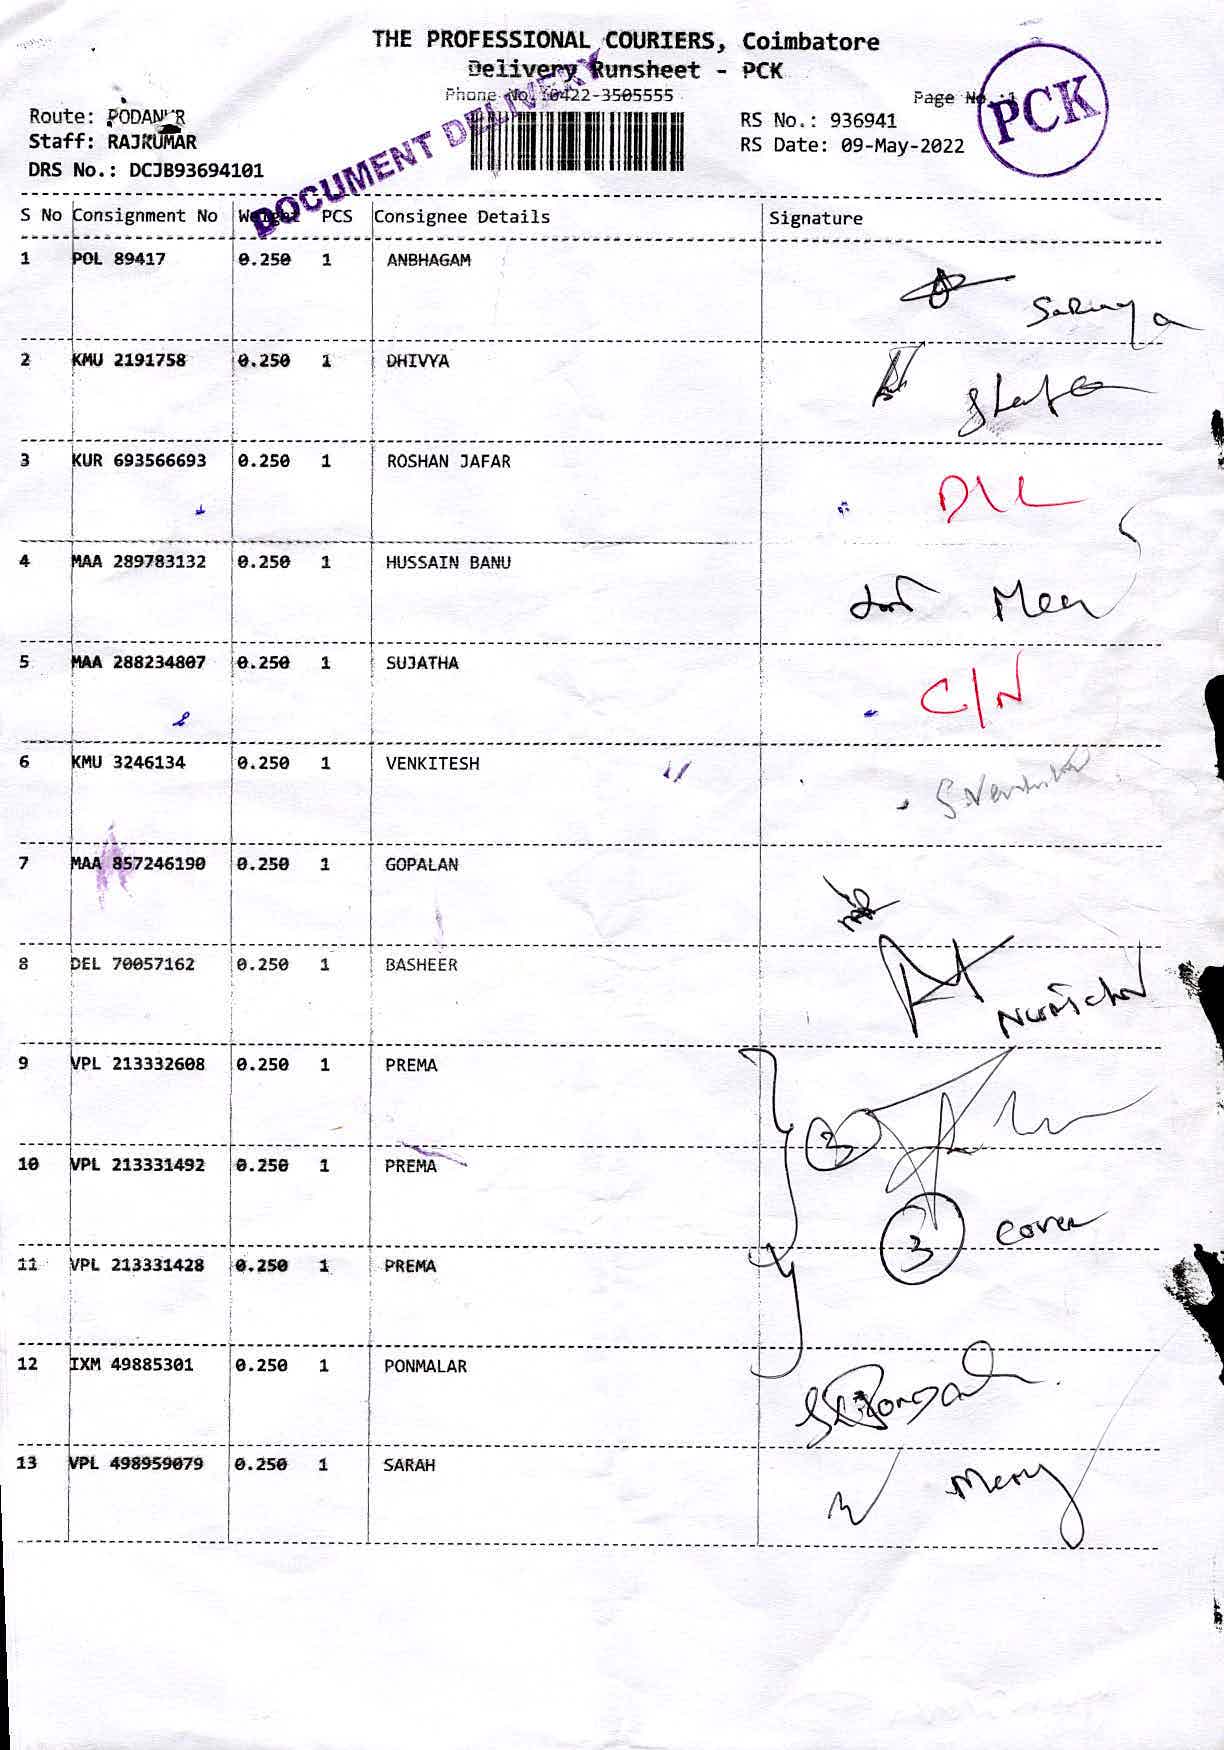 THE PROFESSIONAL COURIERS, Coimbatore
Delivery Runsheet - PCK
Phone No. :0422-3505555
Page No.:1
PCK
DOCUMENT DELIVERY
Route: PODANUR
Staff: RAJKUMAR
DRS No.: DCJB93694101
RS No.: 936941
RS Date: 09-May-2022
S No Consignment No Weight PCS Consignee Details Signature
1 POL 89417 0.250 1 ANBHAGAM
2 KMU 2191758 0.250 1 DHIVYA
3 KUR 693566693 0.250 1 ROSHAN JAFAR D\L
4 MAA 289783132 0.250 1 HUSSAIN BANU
5 MAA 288234807 0.250 1 SUJATHA C/N
6 KMU 3246134 0.250 1 VENKITESH
7 MAA 857246190 0.250 1 GOPALAN
8 DEL 70057162 0.250 1 BASHEER
9 VPL 213332608 0.250 1 PREMA
10 VPL 213331492 0.250 1 PREMA 3 cover
11 VPL 213331428 0.250 1 PREMA
12 IXM 49885301 0.250 1 PONMALAR
13 VPL 498959079 0.250 1 SARAH Mery